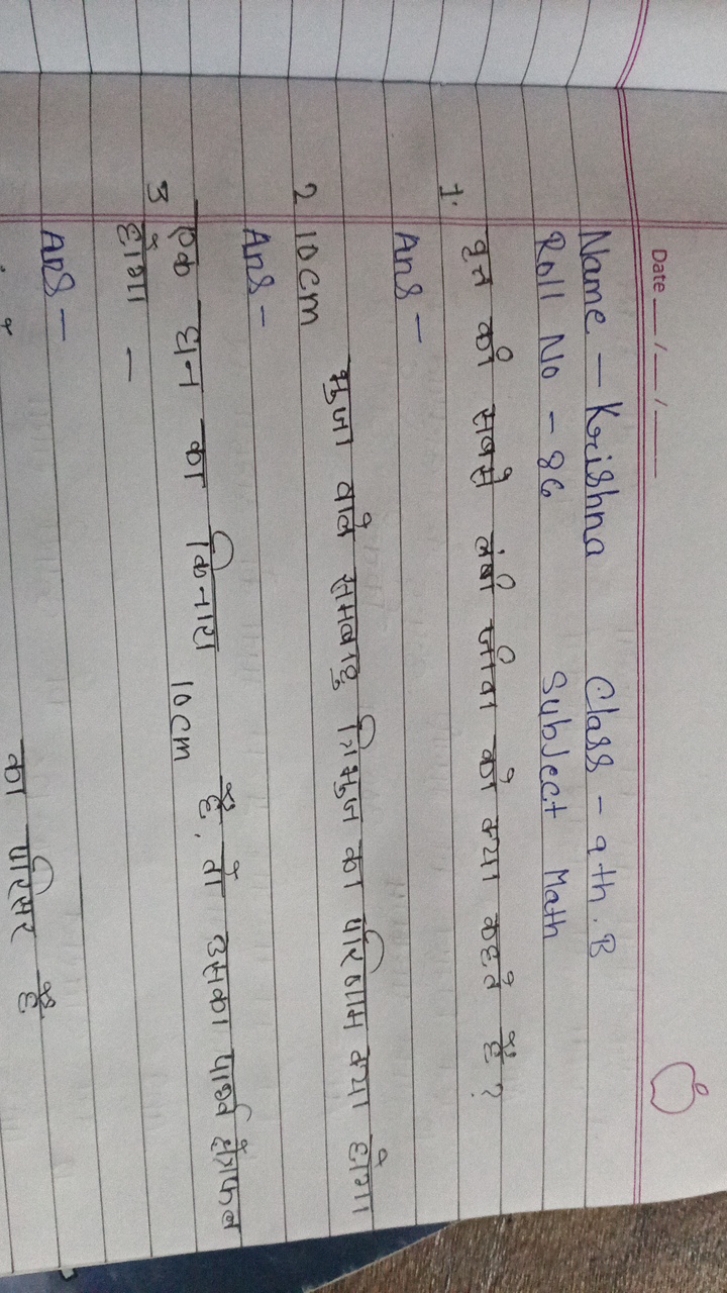 Date __/__/__
Name - Krishna Class - 9th. B
Roll No - 86 Subject Math
1. वृत की सबसे लंबी जीवा को क्या कहते हैं ?
Ans -
2 10 cm भुजा वाले समबाहु त्रिभुज का परिणाम क्या होगा
Ans -
3 एक घन का किनारा 10 cm है, तो उसका पार्श्व क्षेत्रफल
होगा -
Ans -
का परिसर है